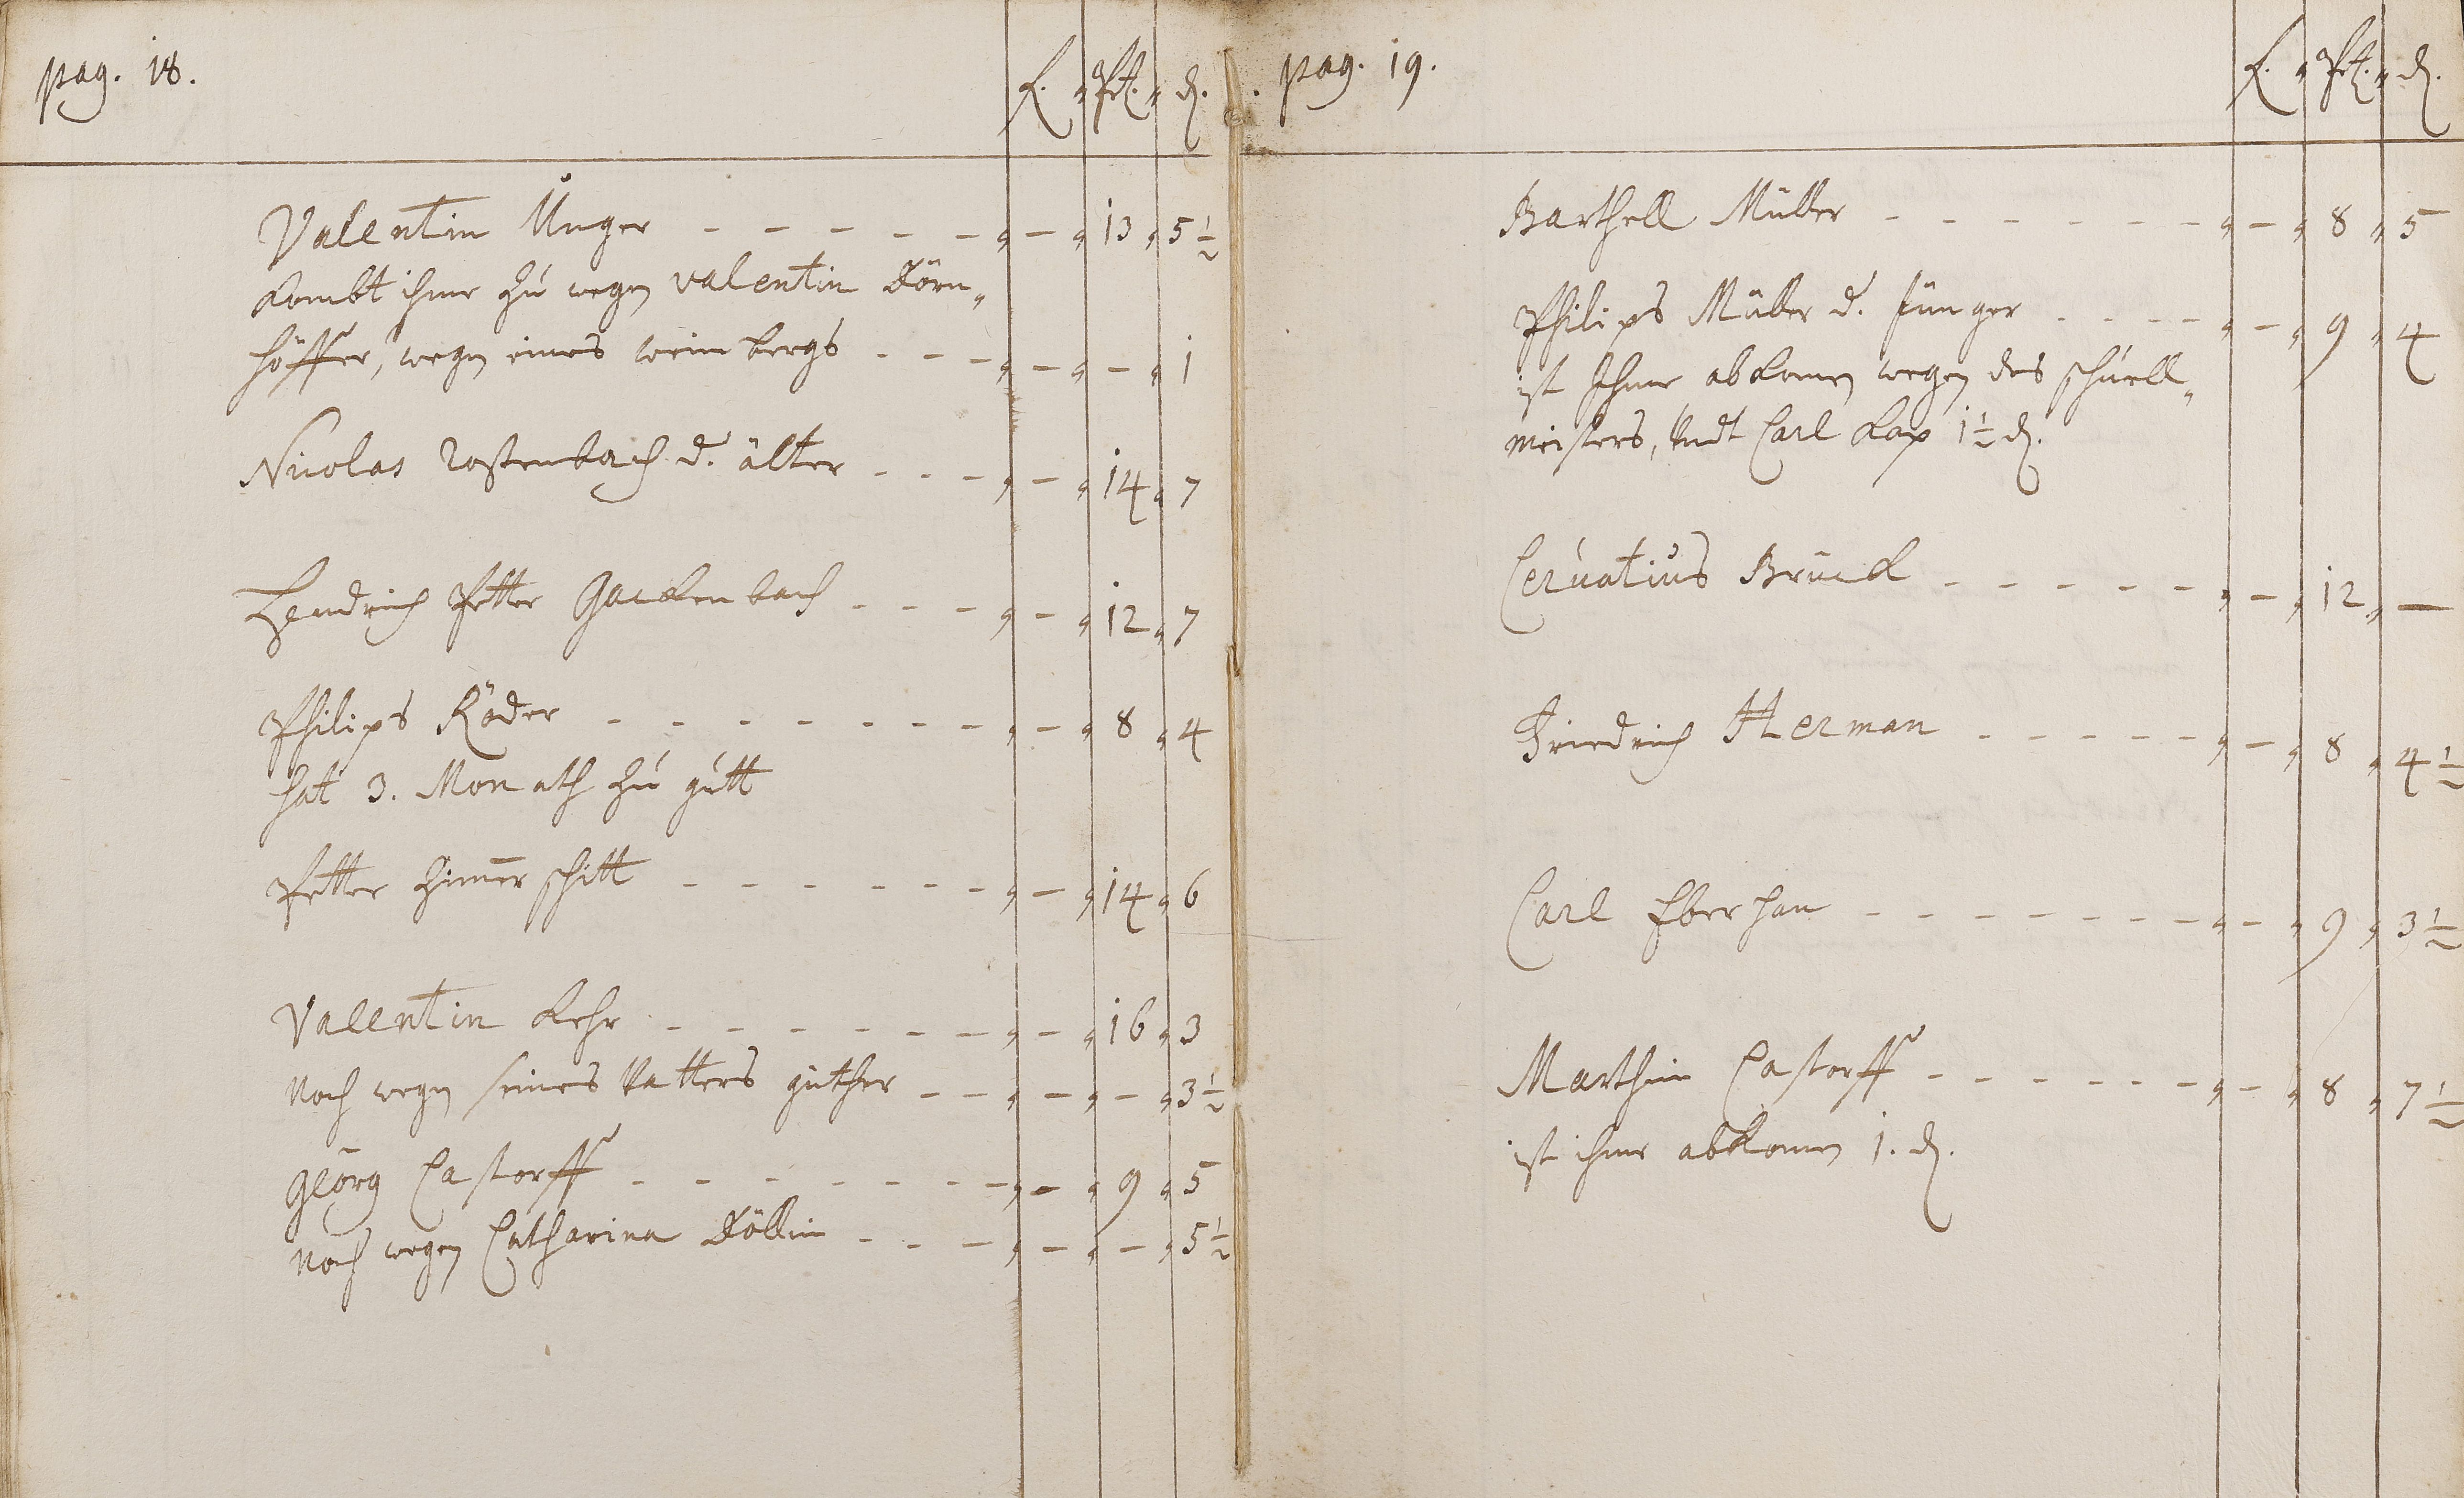 pag. 18.
f. " Pet. " d.
Valentin Unger - - - - - " - " 13 " 5 1/2
kombt ihme zu wegen valentin Dörn"
höffer, wegen eines weinbergs - - - " - " - " 1
Nicolas Rossenbach d. älter - - - " - " 14 " 7
Hendrich Petter Gackenbach - - - " - " 12 " 7
Philips Röder - - - - - - - " - " 8 " 4
hat 3. Monath zu gutt
Petter Zimerschitt - - - - - - " - " 14 " 6
Valentin Kehr - - - - - - " - " 16 " 3
noch wegen seines Vatters güther - - " - " - " 3 1/2
Georg Castorff - - - - - - - " - " 9 " 5
noch wegen Catharina Döllin - - - " - " - " 5 1/2
pag. 19.
f. " Pet. " d.
Barthell Müller - - - - - - " - " 8 " 5
Philips Müller d. Jünger - - - - " - " 9 " 4
ist Ihme abkomen wegen des schuell"
meisters, undt Carl Kap 1 1/2 d.
Cervatius Bruck - - - - - " - " 12 " -
Friedrich Herman - - - - - " - " 8 " 4 1/2
Carl Eberhan - - - - - - - " - " 9 " 3 1/2
Marthin Castorff - - - - - - " - " 8 " 7 1/2
ist ihme abkomen 1. d.